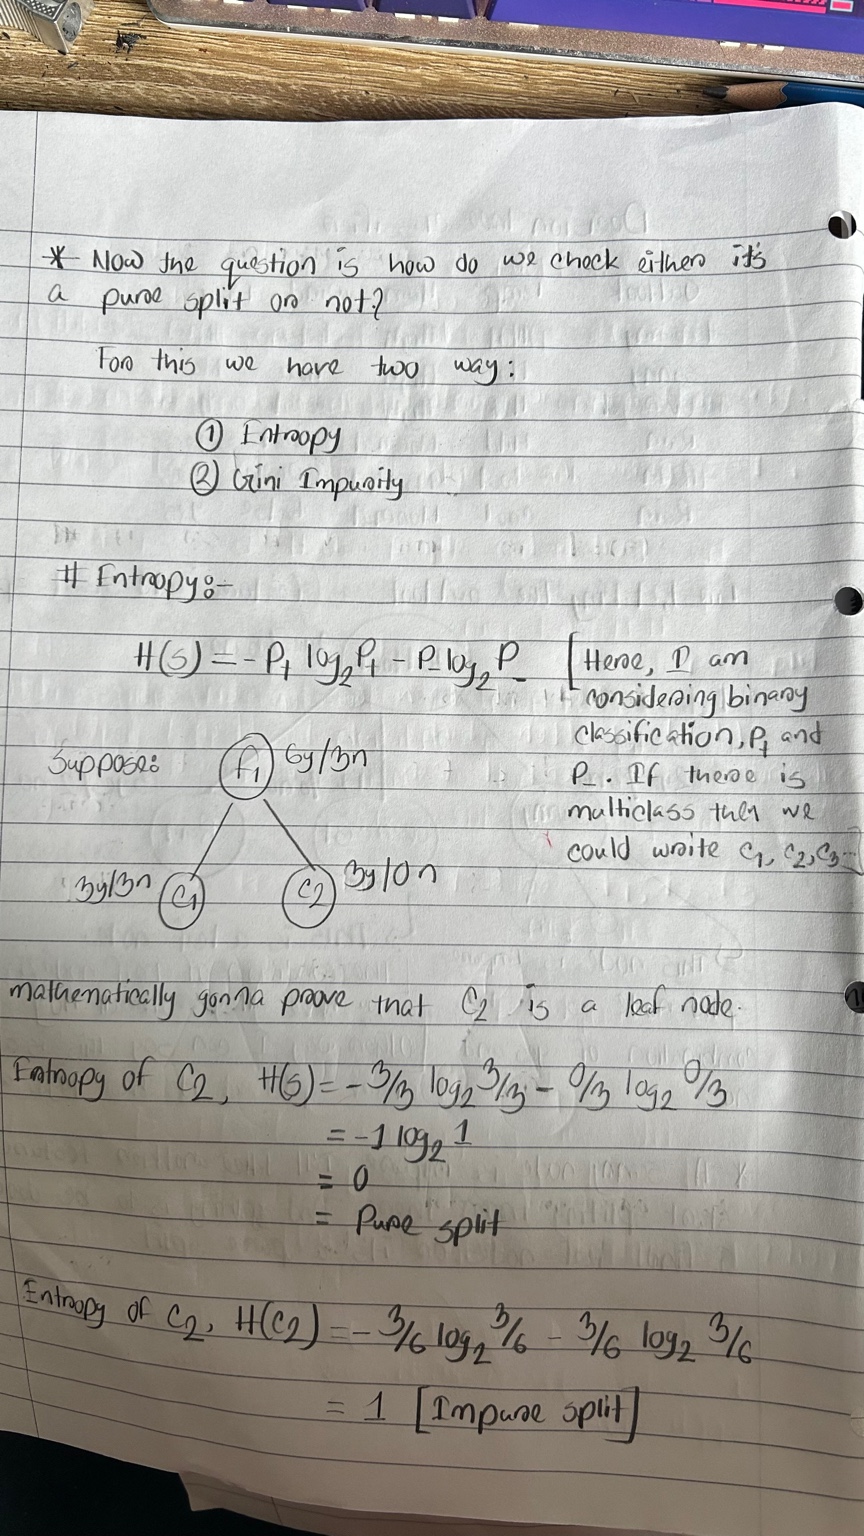 * Now the question is how do we check either it's
a pure split or not?
For this we have two way:
① Entropy
② Gini Impurity
# Entropy:-
H(S) = - P₊ log₂P₊ - P₋ log₂ P₋ [Here, I am
considering binary
classification, P₊ and
P₋. If there is
multiclass then we
could write C₁, C₂, C₃--]
Suppose: f₁ 6y/3n
3y/3n C₁ C₂ 3y/0n
mathematically gonna prove that C₂ is a leaf node.
Entropy of C₂, H(S) = - 3/3 log₂ 3/3 - 0/3 log₂ 0/3
= -1 log₂ 1
= 0
= Pure split
Entropy of C₂, H(C₂) = - 3/6 log₂ 3/6 - 3/6 log₂ 3/6
= 1 [Impure split]